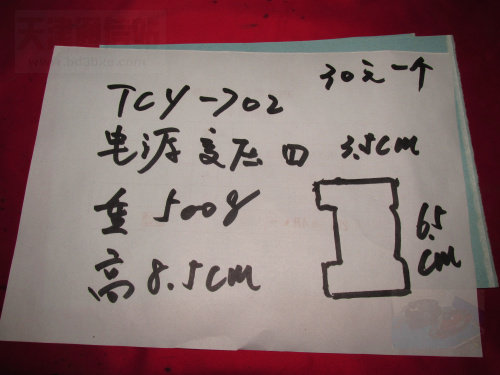 www.bd3bke.com
30元一个
TCY-702
电源变压四
3.5cm
重 500g
6.5
cm
高 8.5cm